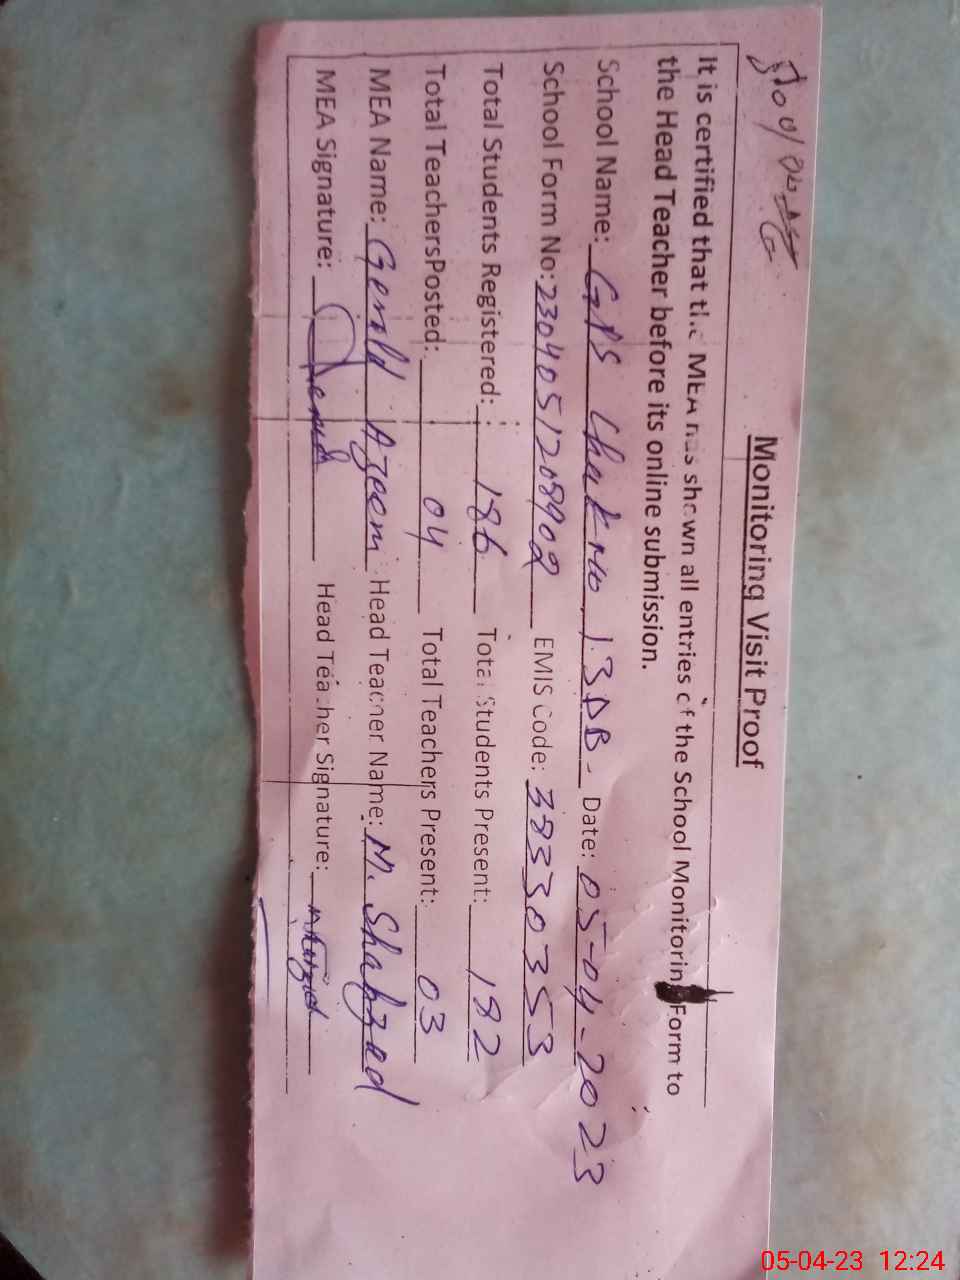 Monitoring Visit Proof
It is certified that the MEA has shown all entries of the School Monitoring Form to
the Head Teacher before its online submission.
School Name: GPS Chak no 13DB- Date: 05-04-2023
School Form No: 2304051208902 EMIS Code: 38330353
Total Students Registered: 186 Total Students Present: 182
Total TeachersPosted: 04 Total Teachers Present: 03
MEA Name: Azeem Head Teacher Name: M. Shahzad
MEA Signature: Head Teacher Signature:
05-04-23 12:24